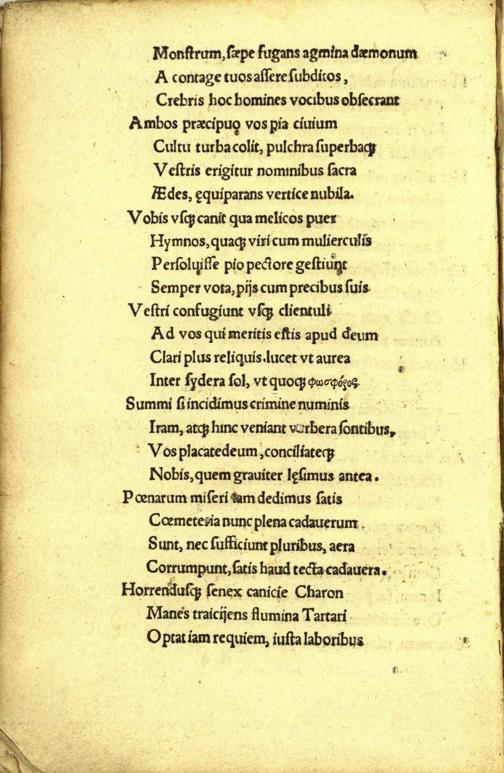 Monſtrum, ſæpe fugans agmina dæmonum
A contage tuos aſſere ſubditos,
Crebris hoc homines vocibus obſecrant
Ambos præcipuo vos pia ciuium
Cultu turba colit, pulchra ſuperbaqꝫ
Veſtris erigitur nominibus ſacra
Ædes, ęquiparans vertice nubila.
Vobis vſqꝫ canit qua melicos puer
Hymnos, quaqꝫ viri cum mulierculis
Perſoluiſſe pio pectore geſtiunt
Semper vota, pijs cum precibus ſuis
Veſtri confugiunt vſqꝫ clientuli
Ad vos qui meritis eſtis apud deum
Clari plus reliquis. lucet vt aurea
Inter ſydera ſol, vt quoqꝫ φωσφόρος.
Summi ſi incidimus crimine numinis
Iram, atqꝫ hinc veniant verbera ſontibus,
Vos placate deum, conciliateqꝫ
Nobis, quem grauiter lęſimus antea.
Pœnarum miſeri iam dedimus ſatis
Cœmeteria nunc plena cadauerum
Sunt, nec ſufficiunt pluribus, aera
Corrumpunt, ſatis haud tecta cadauera.
Horrenduſqꝫ ſenex canicie Charon
Manes traicijens flumina Tartari
Optat iam requiem, iuſta laboribus